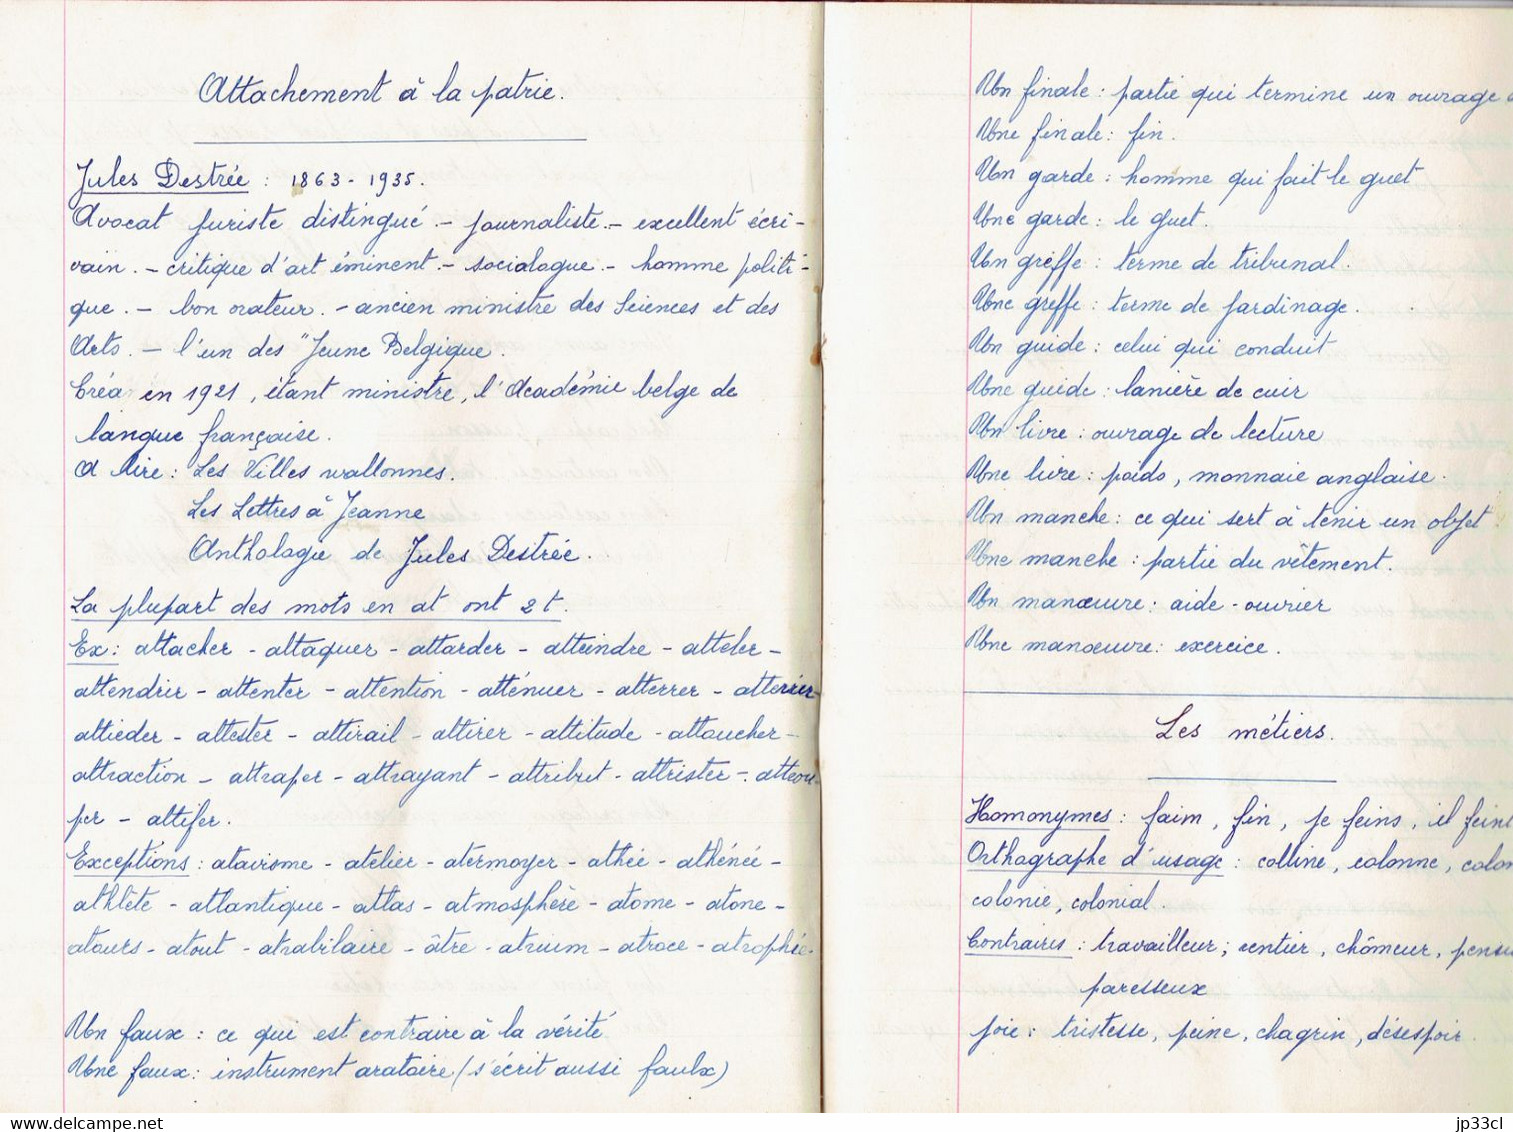 Attachement à la patrie.
Jules Destrée : 1863 - 1935.
Avocat juriste distingué - journaliste. - excellent écri-
vain. - critique d'art éminent - sociologue - homme politi-
que. - bon orateur. - ancien ministre des Sciences et des
Arts. - l'un des "Jeune Belgique.
Créa en 1921, étant ministre, l'Académie belge de
langue française.
A lire : Les Villes wallonnes.
Les Lettres à Jeanne
Anthologie de Jules Destrée.
La plupart des mots en at ont 2 t.
Ex : attacher - attaquer - attarder - atteindre - atteler -
attendrir - attenter - attention - atténuer - atterrer - atterrir -
attiéder - attester - attirail - attirer - attitude - attoucher -
attraction - attraper - attrayant - attribut - attrister - attrou-
per - attifer.
Exceptions : atavisme - atelier - atermoyer - athée - athénée -
athlète - atlantique - atlas - atmosphère - atome - atone -
atours - atout - atrabilaire - âtre - atrium - atroce - atrophée.
Un faux : ce qui est contraire à la vérité
Une faux : instrument aratoire (s'écrit aussi faulx)
Un finale : partie qui termine un ouvrage
Une finale : fin.
Un garde : homme qui fait le guet
Une garde : le guet.
Un greffe : terme de tribunal.
Une greffe : terme de jardinage.
Un guide : celui qui conduit
Une guide : lanière de cuir
Un livre : ouvrage de lecture
Une livre : poids, monnaie anglaise.
Un manche : ce qui sert à tenir un objet
Une manche : partie du vêtement.
Un manœuvre : aide - ouvrier
Une manœuvre : exercice.
Les métiers.
Homonymes : faim, fin, je feins, il feint
Orthographe d'usage : colline, colonne, colon
colonie, colonial.
Contraires : travailleur ; rentier, chômeur,
paresseux
joie : tristesse, peine, chagrin, désespoir.
jp33cl